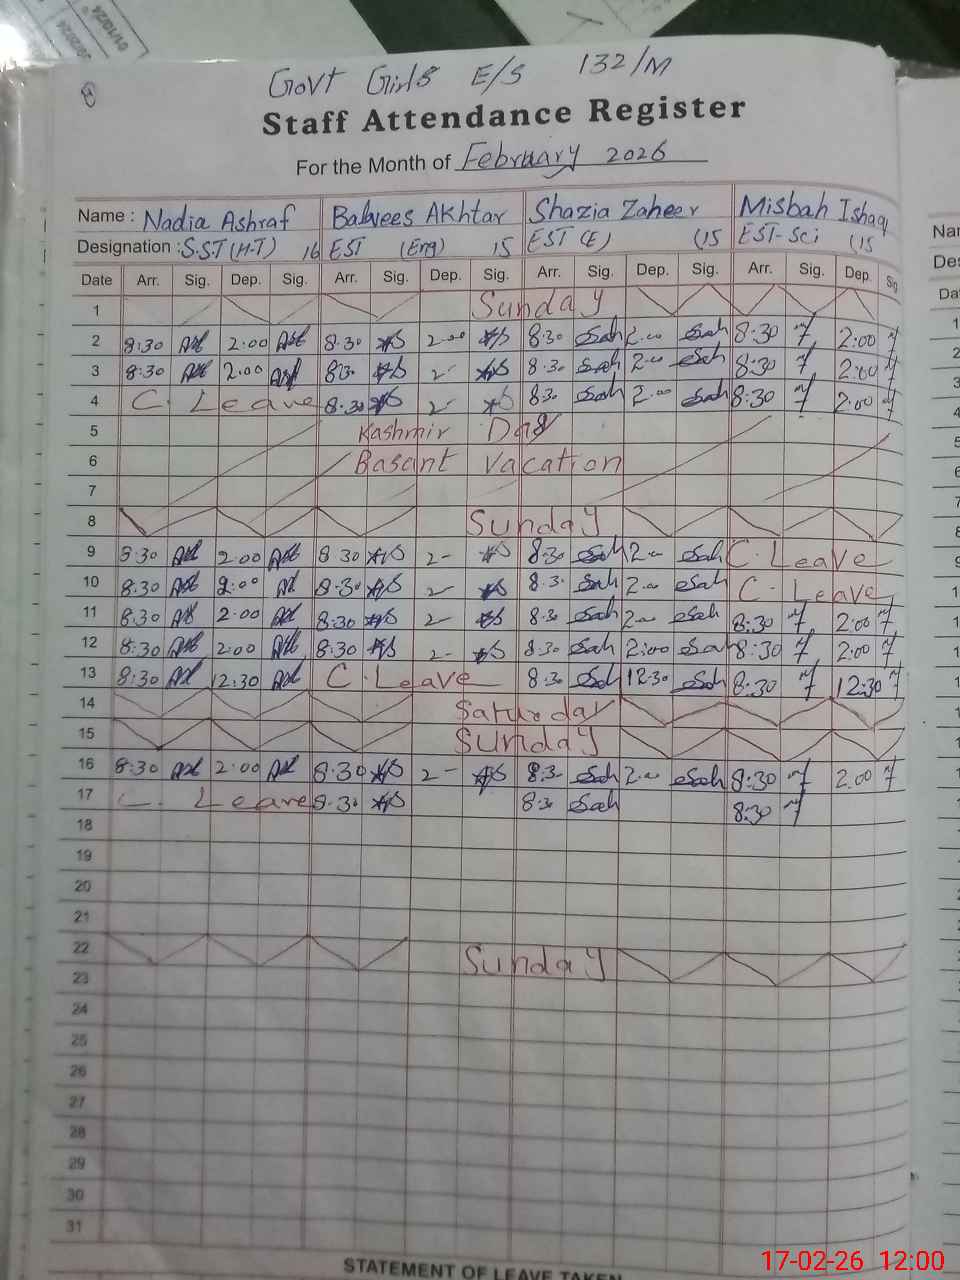 01/10/24
Govt Girls E/S 132/M
Staff Attendance Register
For the Month of February 2026
Name : Nadia Ashraf Balqees Akhtar Shazia Zaheer Misbah Ishaq
Designation : S.S.T (H-T) 16 EST (Eng) 15 EST (E) (15 EST-Sci (15
Date Arr. Sig. Dep. Sig. Arr. Sig. Dep. Sig. Arr. Sig. Dep. Sig. Arr. Sig. Dep. Sig
1 Sunday
2 8:30 2:00 8:30 2:00 8:30 2:00 8:30 2:00
3 8:30 2:00 8:30 2- 8:30 2:00 8:30 2:00
4 C. Leave 8:30 2- 8:30 2:00 8:30 2:00
5 Kashmir Day
6 Basant Vacation
7
8 Sunday
9 8:30 2:00 8:30 2- 8:30 2:00 C. Leave
10 8:30 2:00 8:30 2- 8:30 2:00 C. Leave
11 8:30 2:00 8:30 2- 8:30 2:00 8:30 2:00
12 8:30 2:00 8:30 2- 8:30 2:00 8:30 2:00
13 8:30 12:30 C. Leave 8:30 12:30 8:30 12:30
14 Saturday
15 Sunday
16 8:30 2:00 8:30 2- 8:30 2:00 8:30 2:00
17 C. Leave 8:30 8:30 8:30
18
19
20
21
22 Sunday
23
24
25
26
27
28
29
30
31
STATEMENT OF LEAVE TAKEN
17-02-26 12:00